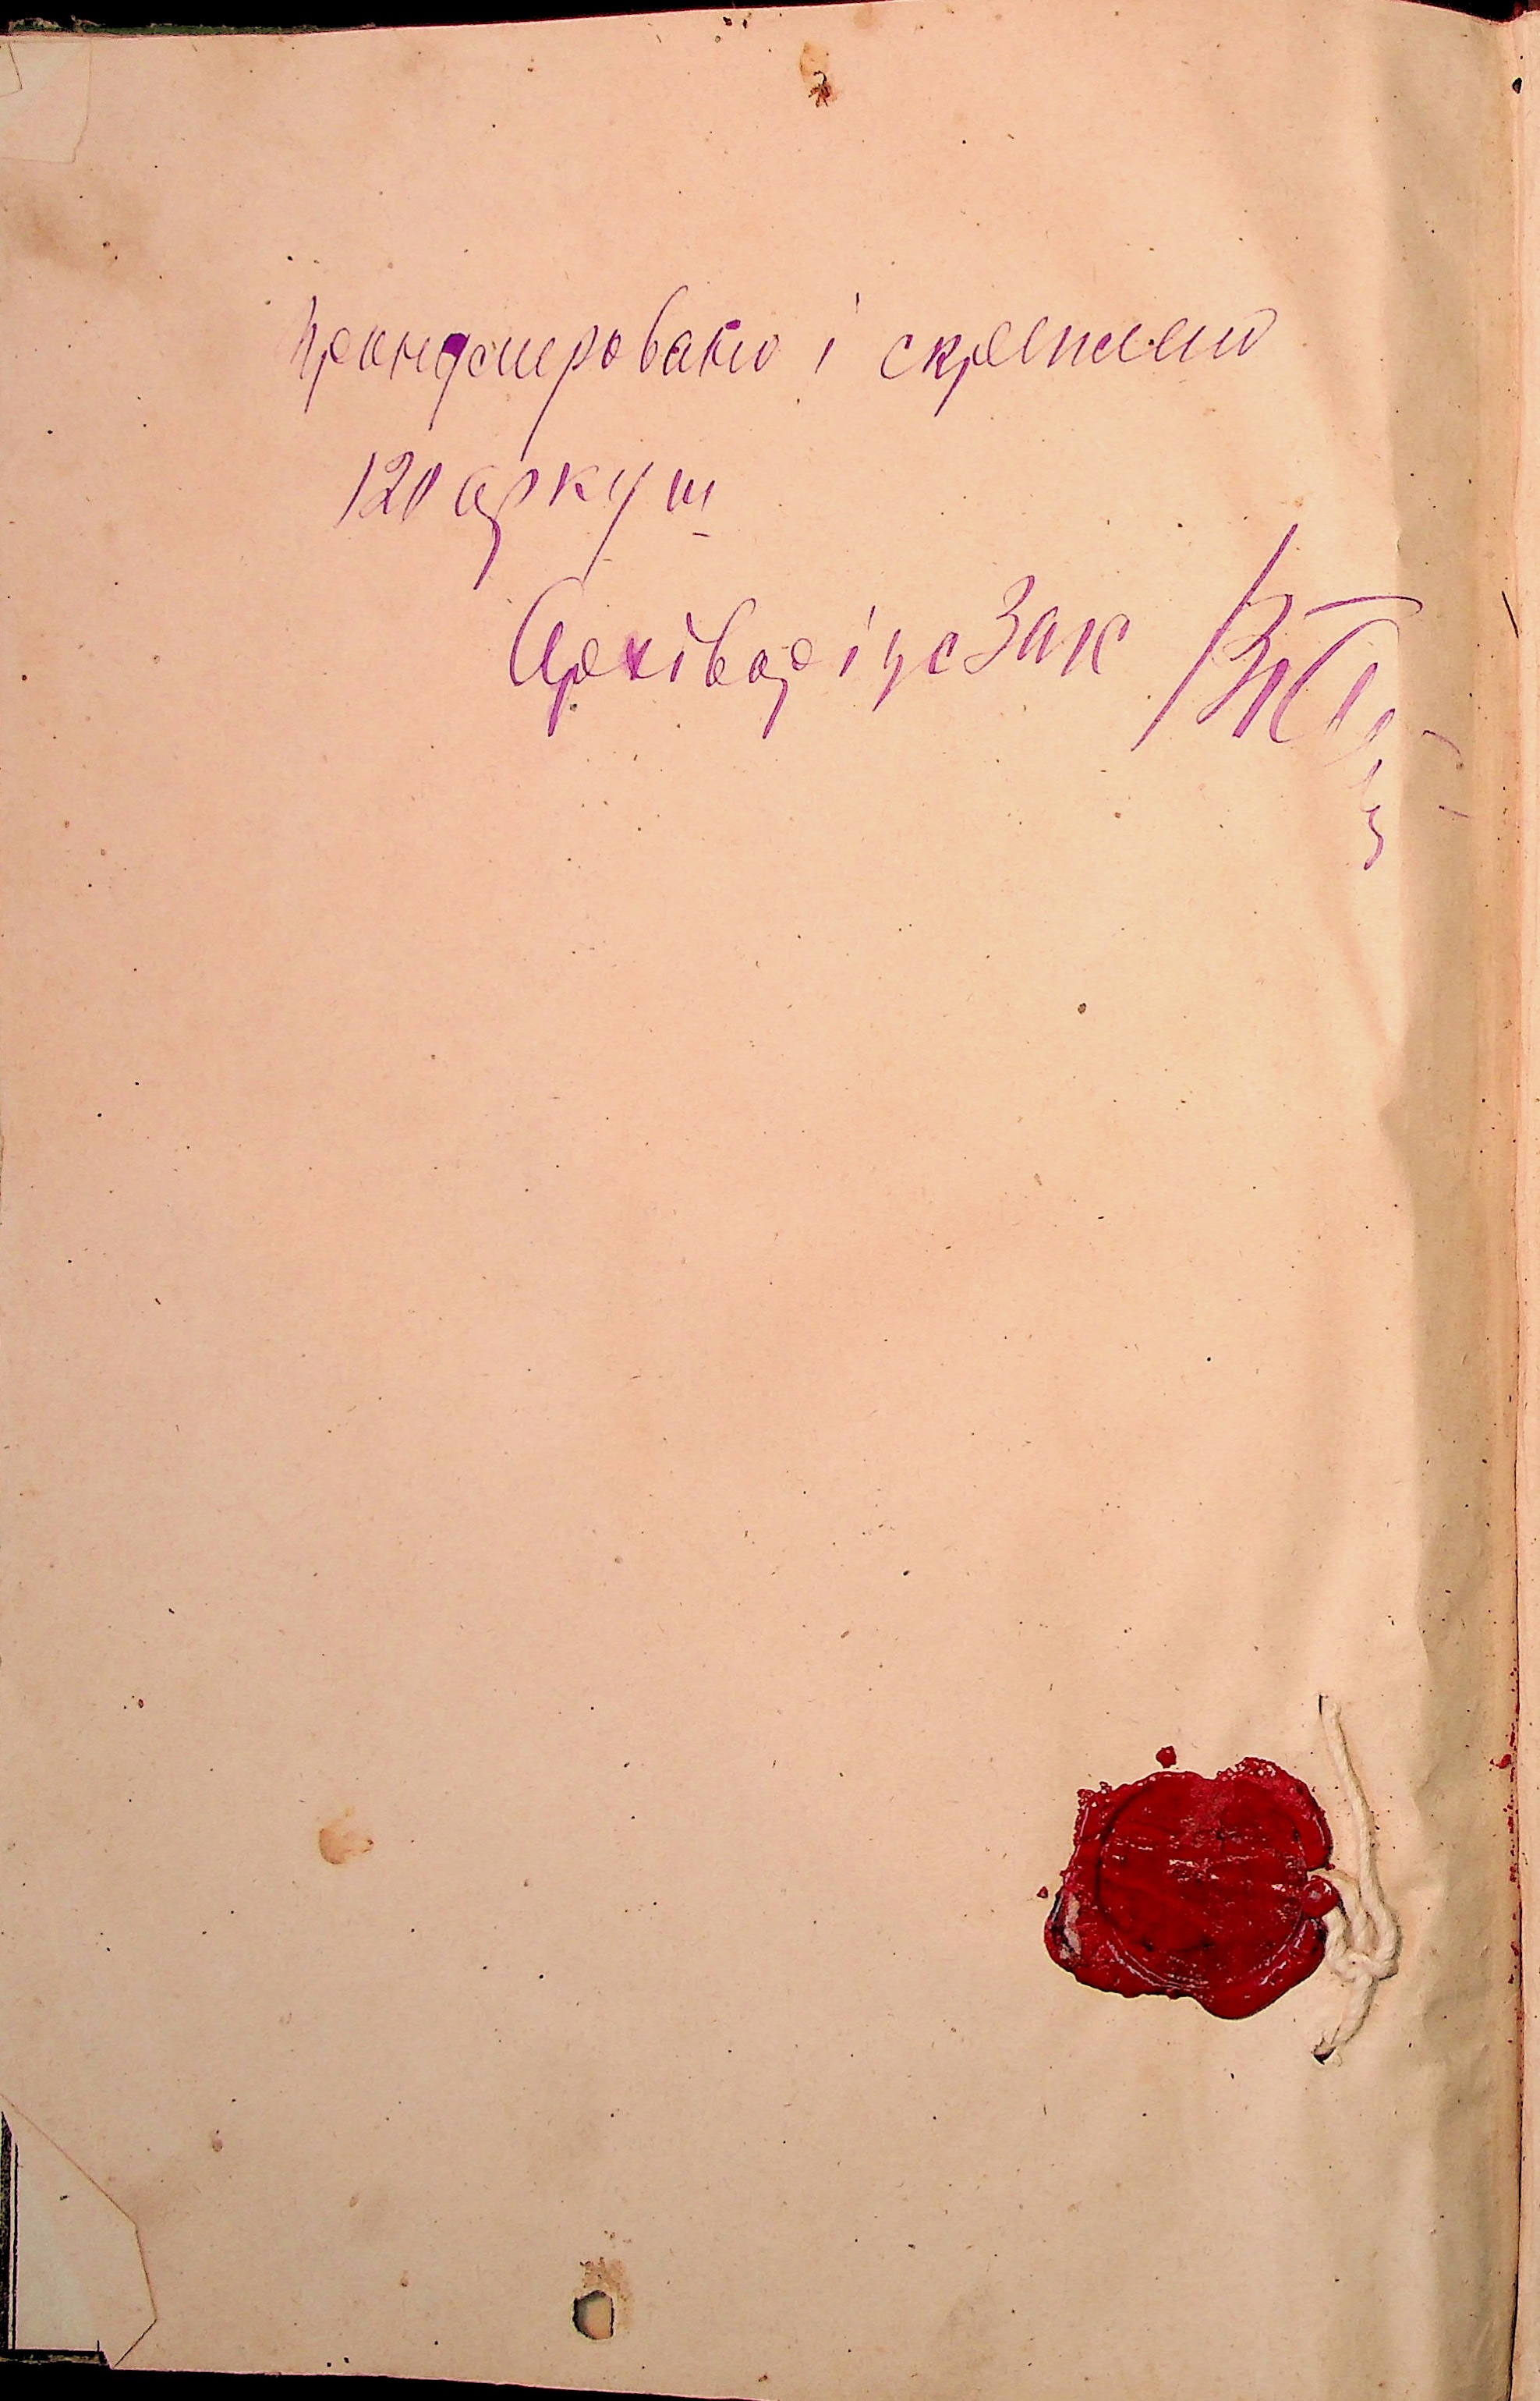 пронумеровано і скреплено
120 аркуш
Архіваріус Зак